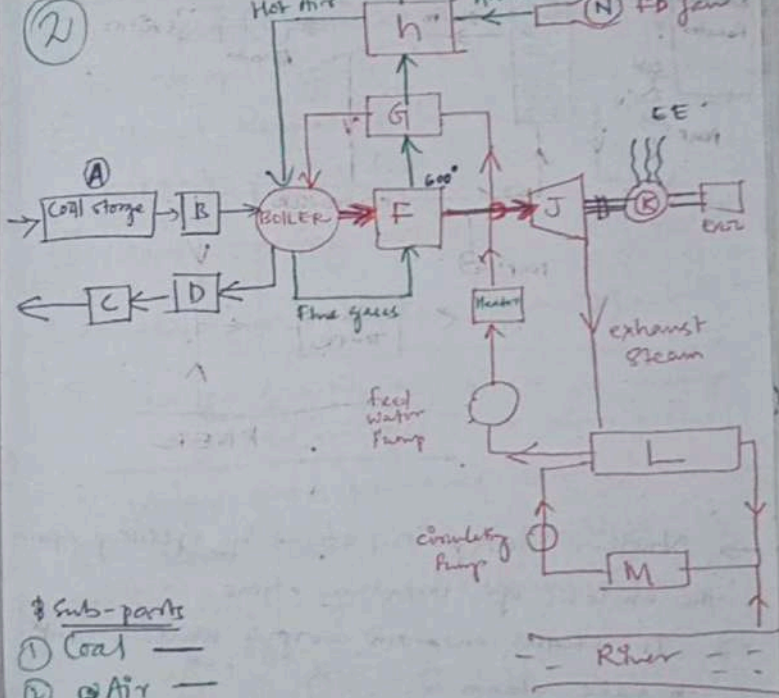 2
Hot Air
h
N
FD fan
G
600°
EE
A
Coal storge
B
BOILER
F
J
K
C
D
Flue gases
Heater
exhaust
steam
feed
water
Pump
L
circulating
Pump
M
Sub-parts
River
1 Coal
2 Air